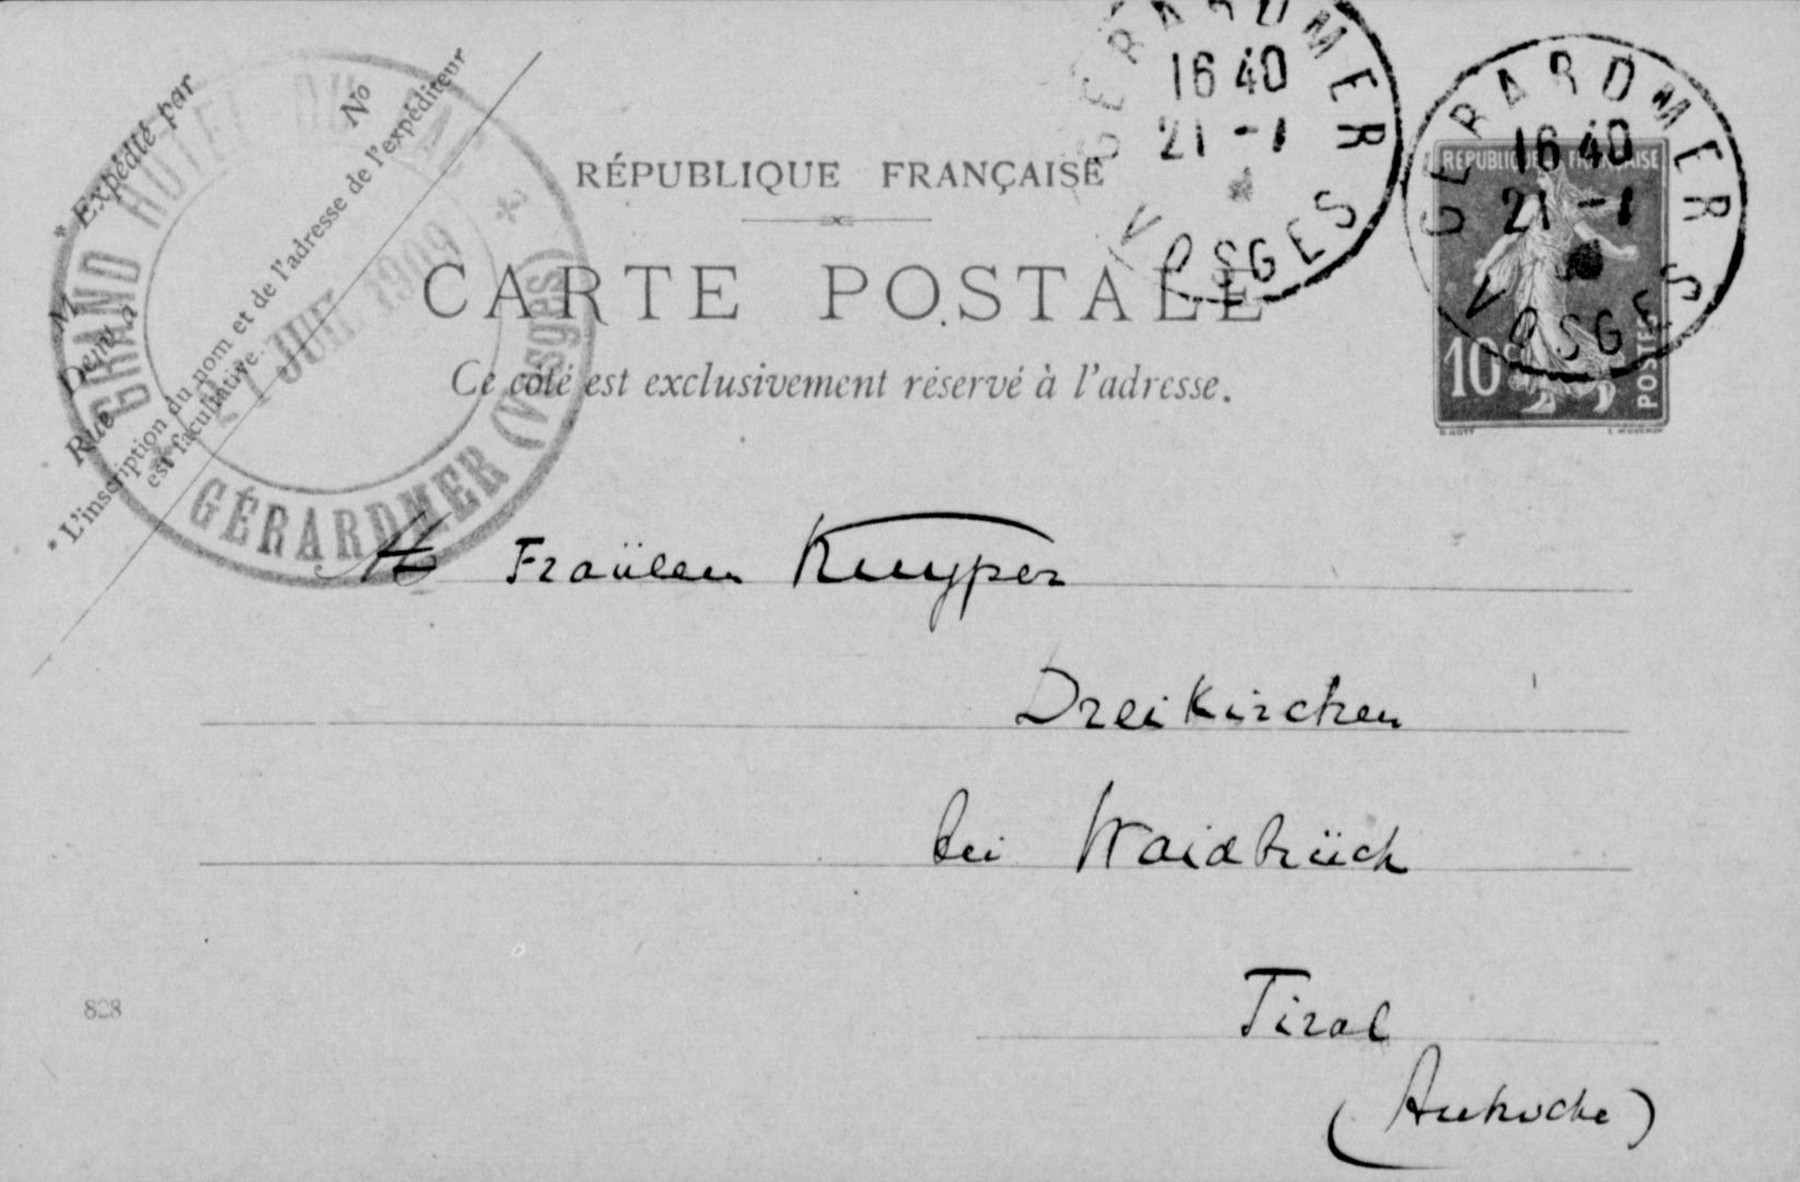 GRAND HÔTEL DU LAC
GÉRARDMER (Vosges)
21 JUIL 1909
* Expédié par
No
M
Demt à
Rue
* L'inscription du nom et de l'adresse de l'expéditeur
est facultative.
GERARDMER
16 40
21 - 1
VOSGES
GERARDMER
16 40
21 - 1
VOSGES
RÉPUBLIQUE FRANÇAISE
CARTE POSTALE
Ce côté est exclusivement réservé à l'adresse.
RÉPUBLIQUE FRANÇAISE
10c
POSTES
Fraülein Kuyper
Dreikirchen
bei Waidbrück
Tirol
(Autriche)
828